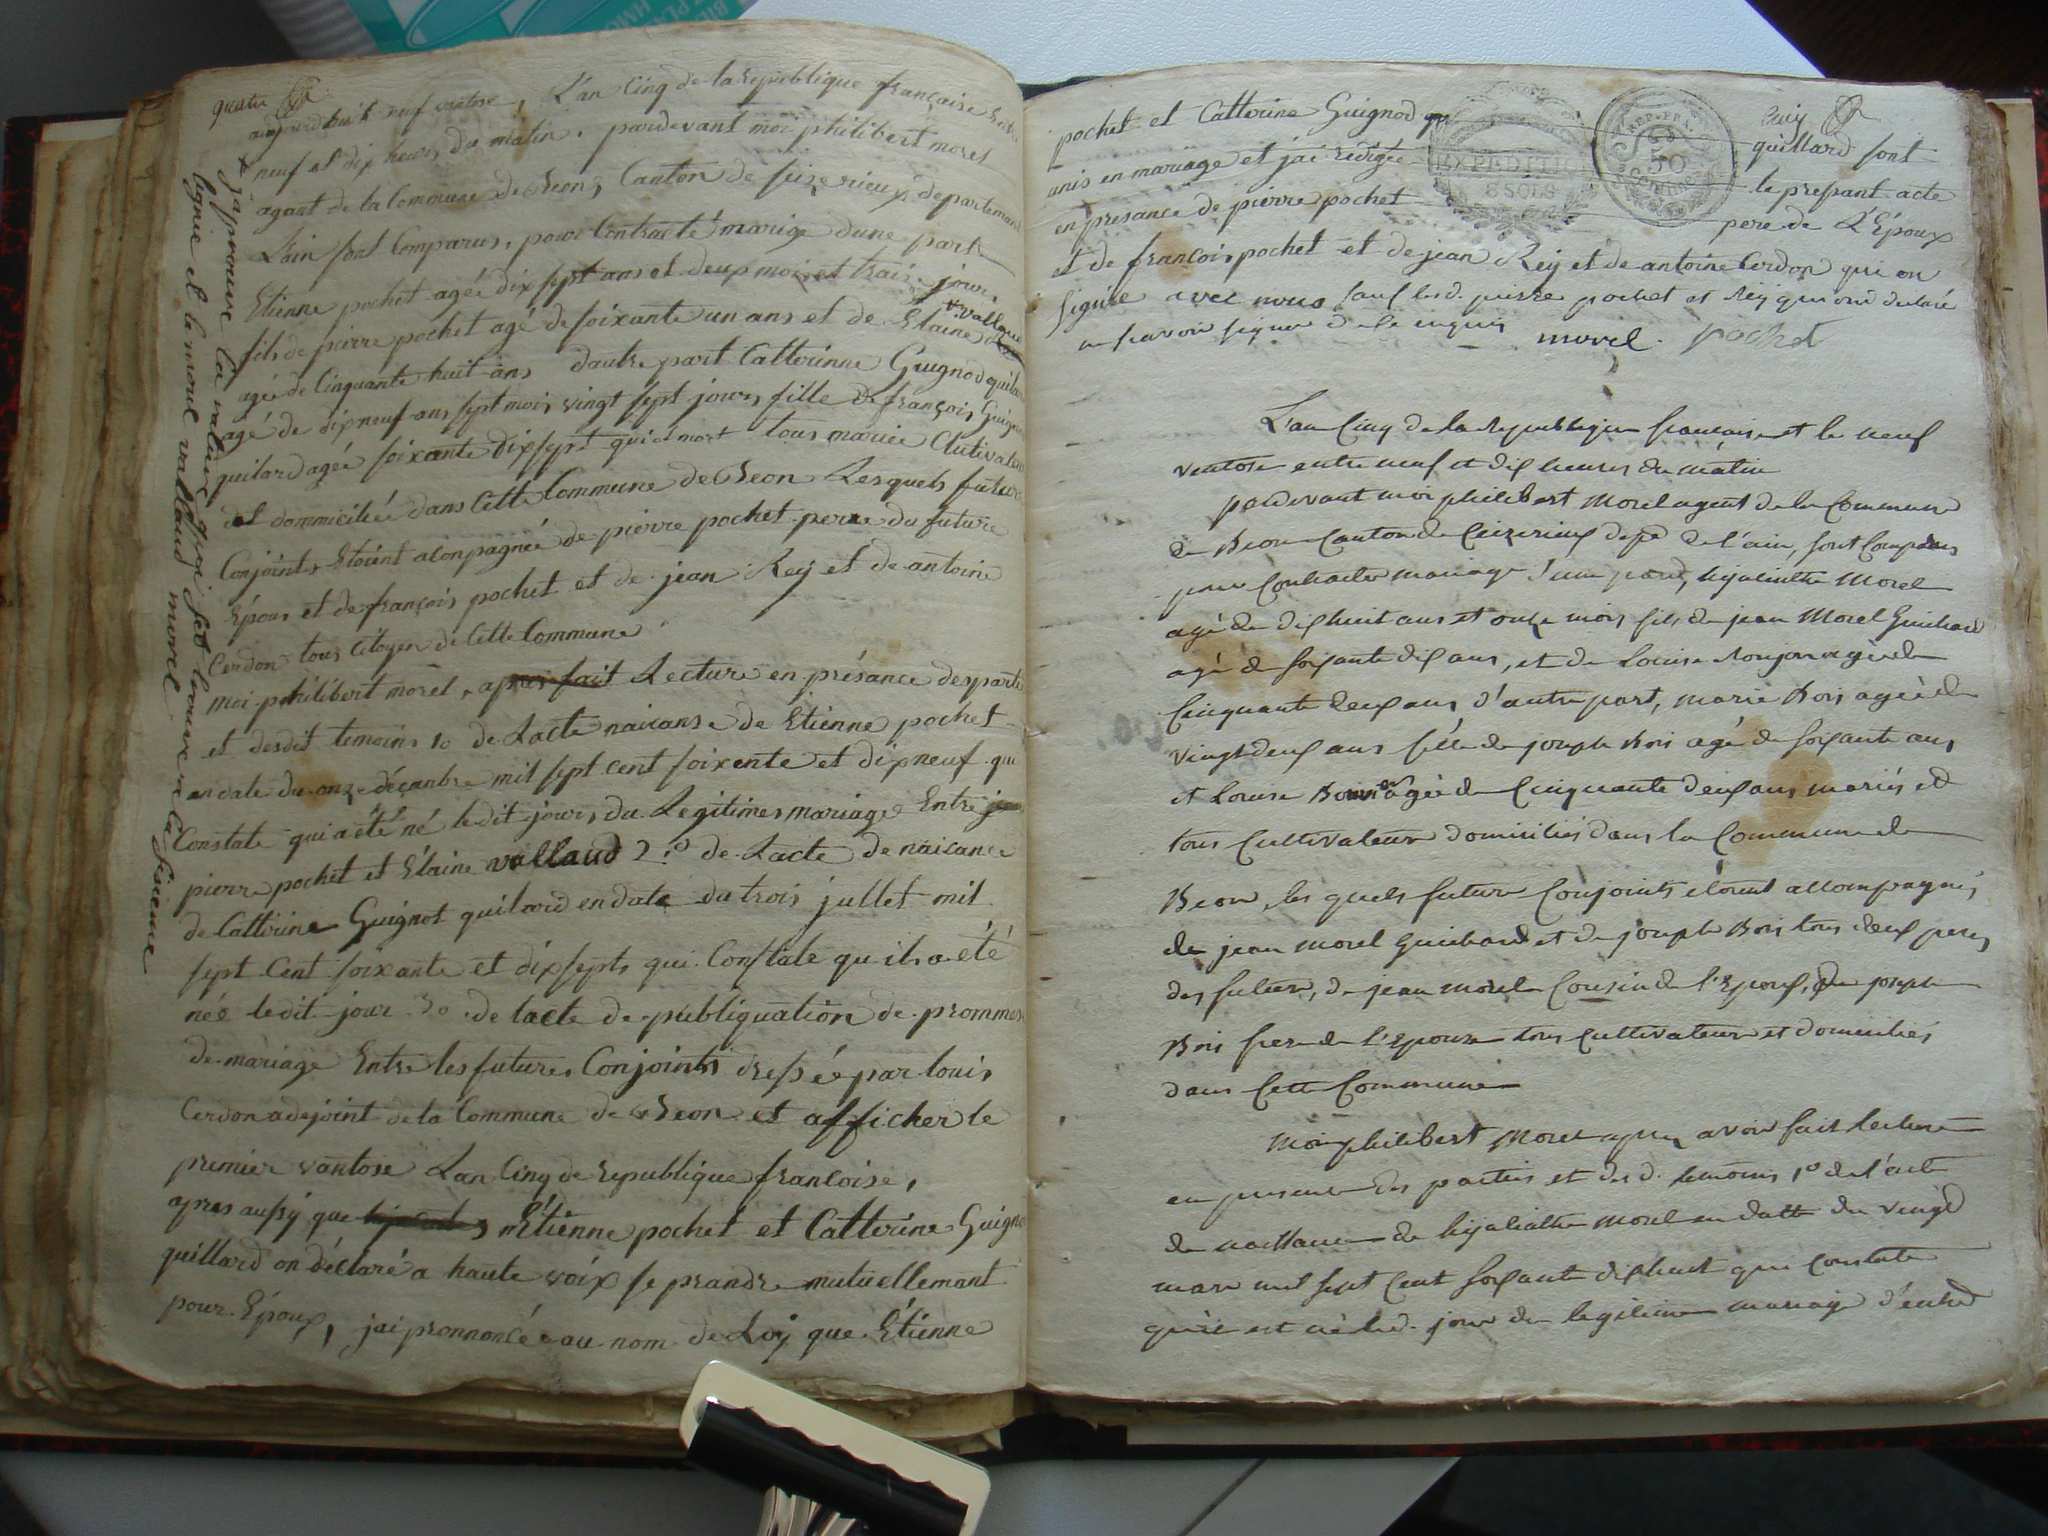 quatre
aujourdhuit neuf vantose, L'an Cinq de la republique françaisse Entre
neuf et dix heures du matin. pardevant moi philibert morel
agant de la Commune de Beon, Canton de seizerieux, departemant
Lain sont Comparus, pour Contracté marige dune part
Etienne pochet agée dix sept ans et deux mois et trais jours,
fils de pierre pochet agé de soixante un ans et de Elaine vallaud
agée de Cinquante huit ans dautre part Catterinne Guignod quilard
agé de dix neuf ans sept mois vingt sept jours fille de françois Guignod
quilard agée soixante dix sept qui et mort tous mariée Cultivateur
et dommiciliée dans Cette Commune de Beon Lesquels future
Conjoints Etoient aconpagnée de pierre pochet pere du future
Epous et de françois pochet et de jean Reÿ et de antoine
Cerdon tous Citoyen de Cette Commune
moi philibert morel, apres fait Lecture en présance des partie
et desdit temoins 1o de Lacte naicanse de Etienne pochet
en date du onze déçanbre mil sept cent soixente et dix neuf qui
Constate qui a été né ledit jours du Legitimes mariage Entre
pierre pochet et Elaine vallaud 2.o de Lacte de naicance
de Catterine Guignot quilard en date du trois jullet mil
sept Cent soixante et dix septs qui Constate qu'il a été
née ledit jour 3o de lacte de publiquation de prommesse
de mariage Entre les futures Conjoints dressée par louis
Cerdon adejoint de la Commune de Beon et afficher le
premier vantose Lan Cinq de republique françoise,
apres aussÿ que Etienne pochet et Catterine Guignod
quillard on déclaré a haute voix se prandre mutuellemant
pour Epoux, jai pronnoncée au nom de Loÿ que Etienne
japprouve la valeur qui set trouve a la sisieme
lignie et le moul vallaud morel
Cinq
pochet et Catterine Guignod quillard sont
unis en mariage et jai redigée le pressant acte
en presance de pierre pochet pere de L'Époux
et de françois pochet et de jean Reÿ et de antoine Cerdon qui on
signée avec nous sauf lesd. pierre pochet et Reÿ qui ont declaré
ne scavoir signer de ce enquis
morel. pochet
EXPEDITION
8 SOLS
REP. FRA.
50
CENTIMES
L'an Cinq de la republique francaise et le neuf
ventose entre neuf et dix heures du matin
pardevant moi philibert Morel agent de la Commune
de Beon Canton de Ceizerieux dept de l'ain, sont Comparus
pour Contracter mariage d'une part, hyacinthe Morel
agé de dix huit ans et onze mois fils de jean Morel Guichard
agé de soixante dix ans, et de Louise agée de
Cinquante deux ans d'autre part, marie Bois agée de
vingt deux ans fille de joseph Bois agé de soixante ans
et Louise agée de Cinquante deux ans mariés et
tous Cultivateur domiciliés dans la Commune de
Beon, les quels future Conjoints etoient accompagnés
de jean morel Guichard et de joseph Bois tous deux peres
des future, de jean morel Cousin de l'Epoux, de joseph
Bois frere de l'epouse tous Cultivateur et domiciliés
dans Cette Commune
Moi philibert Morel apres avoir fait lecture
en presence des parties et desd. temoins 1o de l'acte
de naissance de hyacinthe Morel en datte du vingt
mars mil sept Cent soixante dix huit qui Constate
qu'il est né led. jour du legitime mariage d'entre